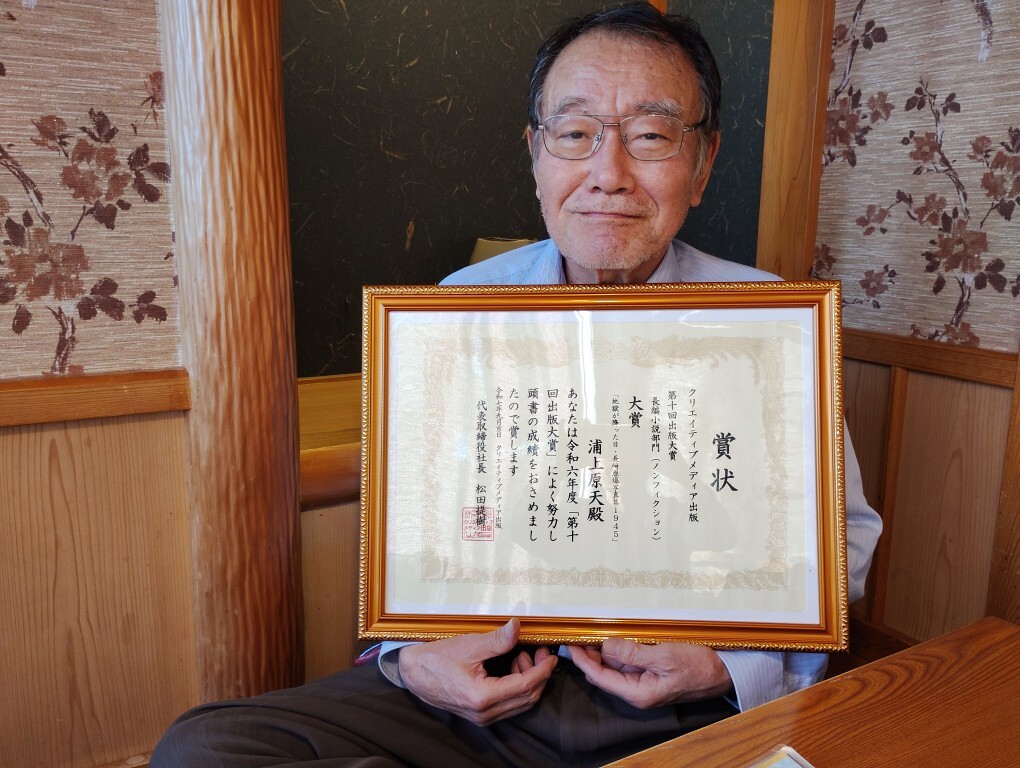 賞状
クリエイティブメディア出版
第十回出版大賞
長編小説部門（ノンフィクション）
大賞
「地獄が降った日・長崎原爆写真集1945」
浦上原天殿
あなたは令和六年度「第十
回出版大賞」によく努力し
頭書の成績をおさめまし
たので賞します
令和七年九月吉日 クリエイティブメディア出版
代表取締役社長 松田提樹